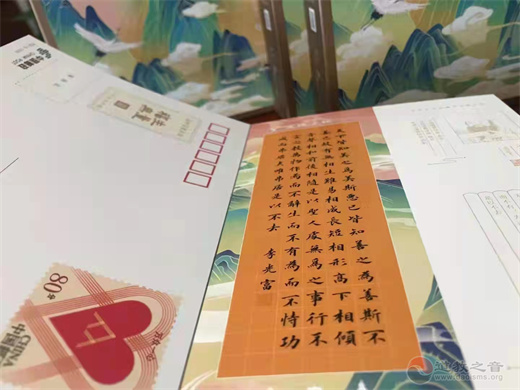 天下皆知美之為美斯惡已皆知善之為善斯不
善已故有無相生難易相成長短相形高下相傾
音聲相和前後相隨是以聖人處無為之事行不
言之教萬物作焉而不辭生而不有為而不恃功
成而弗居夫唯弗居是以不去 李光富
80分
CHINA
中国邮政
道教之音
www.daoisms.org